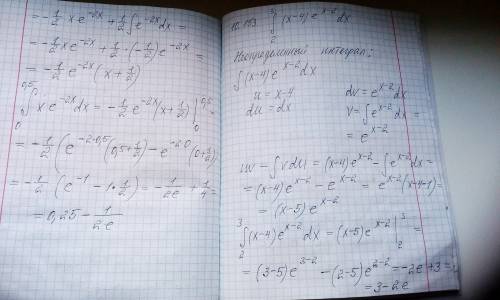 = -1/2 x e^{-2x} + 1/2 ∫ e^{-2x} dx =
= -1/2 x e^{-2x} + 1/2 · (-1/2) e^{-2x} =
= -1/2 e^{-2x} (x + 1/2)
∫_0^{0,5} x · e^{-2x} dx = -1/2 e^{-2x} (x + 1/2) |_0^{0,5} =
= -1/2 (e^{-2·0,5} (0,5 + 1/2) - e^{-2·0} (0 + 1/2)) =
= -1/2 (e^{-1} - 1 · 1/2) = -1/2e + 1/4 =
= 0,25 - 1/2e
∫_2^3 (x-4) e^{x-2} dx
Неопределенный интеграл:
∫ (x-4) e^{x-2} dx
u = x-4 dv = e^{x-2} dx
du = dx v = ∫ e^{x-2} dx =
= e^{x-2}
uv - ∫ v du = (x-4) e^{x-2} - ∫ e^{x-2} dx =
= (x-4) e^{x-2} - e^{x-2} = e^{x-2} (x-4-1) =
= (x-5) e^{x-2}
∫_2^3 (x-4) e^{x-2} dx = (x-5) e^{x-2} |_2^3 =
= (3-5) e^{3-2} - (2-5) e^{2-2} = -2e + 3 =
= 3 - 2e